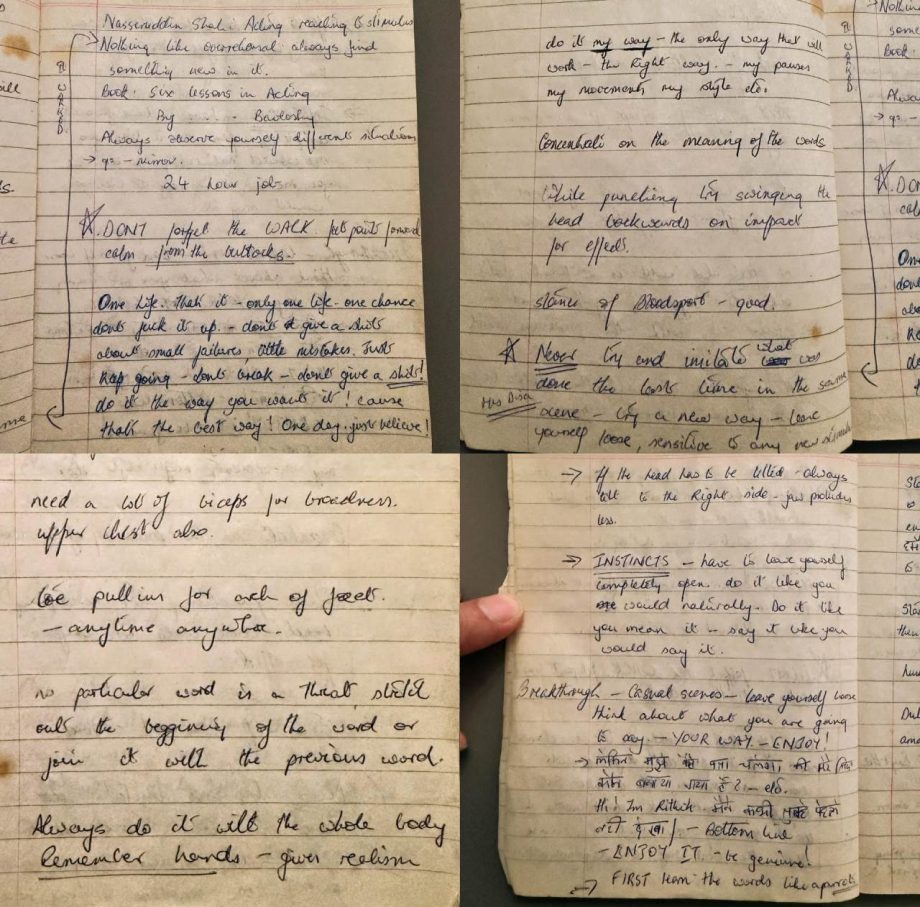 Nasseruddin Shah: Acting reacting to stimulus
Nothing like overrehearsal always find
something new in it.
Book: Six lessons in Acting
By ..... - Bawlosky
Always observe yourself different situations
→ qs - mirror.
24 hour jobs
IT WORKED
DON'T forget the WALK feet points forward
calm from the buttocks.
One life. that it - only one life - one chance
dont fuck it up. - dont give a shits
about small failures little mistakes. Just
Keep going - dont break - dont give a shits!
do it the way you wants it! cause
that's the best way! One day. just believe!
do it my way - the only way that will
work - the Right way. - my pauses
my movements my style etc.
Concentrate on the meaning of the words
While punching try swinging the
head backwards on impact
for effects.
stance of Bloodsport - good.
Never try and imitate what was
done the last time in the same
scene - try a new way - leave
yourself loose, sensitive to any new
need a lot of biceps for broadness.
upper chest also.
toe pull ins for arch of feet.
- anytime anywhere.
no particular word is a threat stretch
out the beggining of the word or
join it with the previous word.
Always do it with the whole body
Remember hands - gives realism
→ If the head has to be tilted - always
tilt to the Right side - jaw protudes
less.
→ INSTINCTS - have to leave yourself
completely open. do it like you
would naturally. Do it like
you mean it - say it like you
would say it.
Breakthrough - Casual scenes - leave yourself loose
think about what you are going
to say. - YOUR WAY - ENJOY!
→ लेकिन मुझे कैसे पता चलेगा की मेरे लिए
कौन बनाया गया है?. - etc.
Hi! I'm Rithik. मैंने कभी तुम्हे पहले
नही देखा / - Bottom line
- ENJOY IT. - be genuine!
→ FIRST learn the words like a parrot